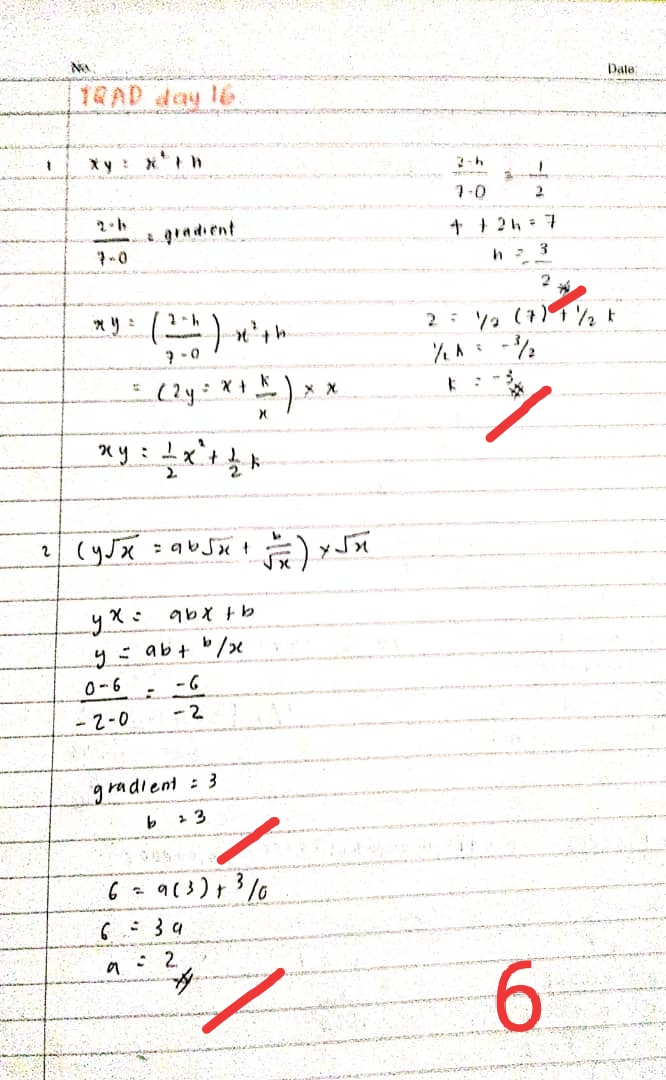 No.
Date
TRAD day 16
1 xy = x² + h
2-h/7-0 = gradient
xy = (2-h/7-0) x² + h
= (2y = x + k/x) × x
xy = 1/2 x² + 1/2 k
2-h/7-0 = 1/2
4 + 2h = 7
h = -3/2
2 = 1/2 (7) + 1/2 k
1/2 k = -3/2
k = -3
2 (y√x = ab√x + b/√x) × √x
yx = abx + b
y = ab + b/x
0-6/-2-0 = -6/-2
gradient = 3
b = 3
6 = a(3) + 3/0
6 = 3a
a = 2
6